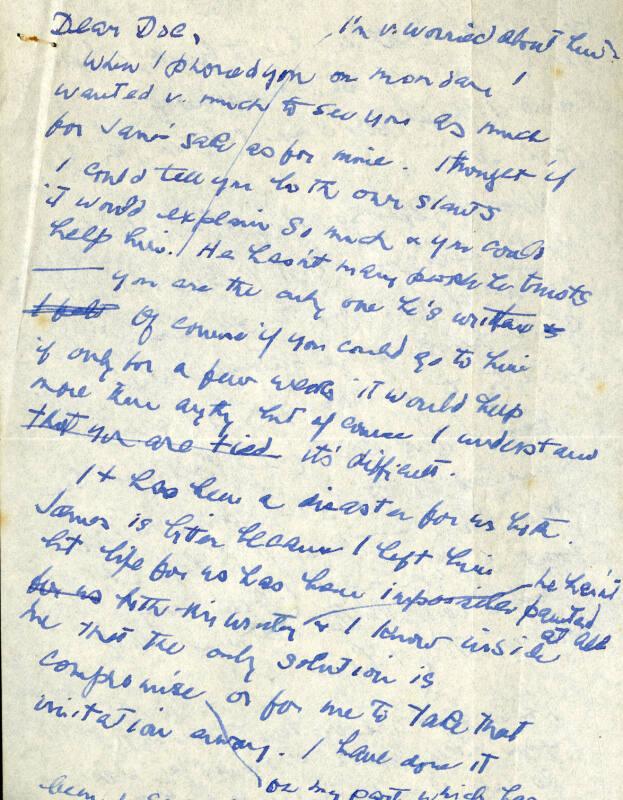 Dear Doc,
I'm v. worried about him.
When I phoned you on monday I
wanted v. much to see you as much
for James' sake as for mine. I thought if
I could tell you both our slants
it would explain so much & you could
help him. He hasn't many people he trusts
you are the only one he's written to
I felt Of course if you could go to him
if only for a few weeks it would help
more than anything but of course I understand
that you are tied it's difficult.
It has been a disaster for us both.
James is bitter because I left him he hasn't
but life for us has been impossible painted
for us both this winter & I know inside at all
me that the only solution is
compromise or for me to take that
irritation away. I have done it
on my part which has
been